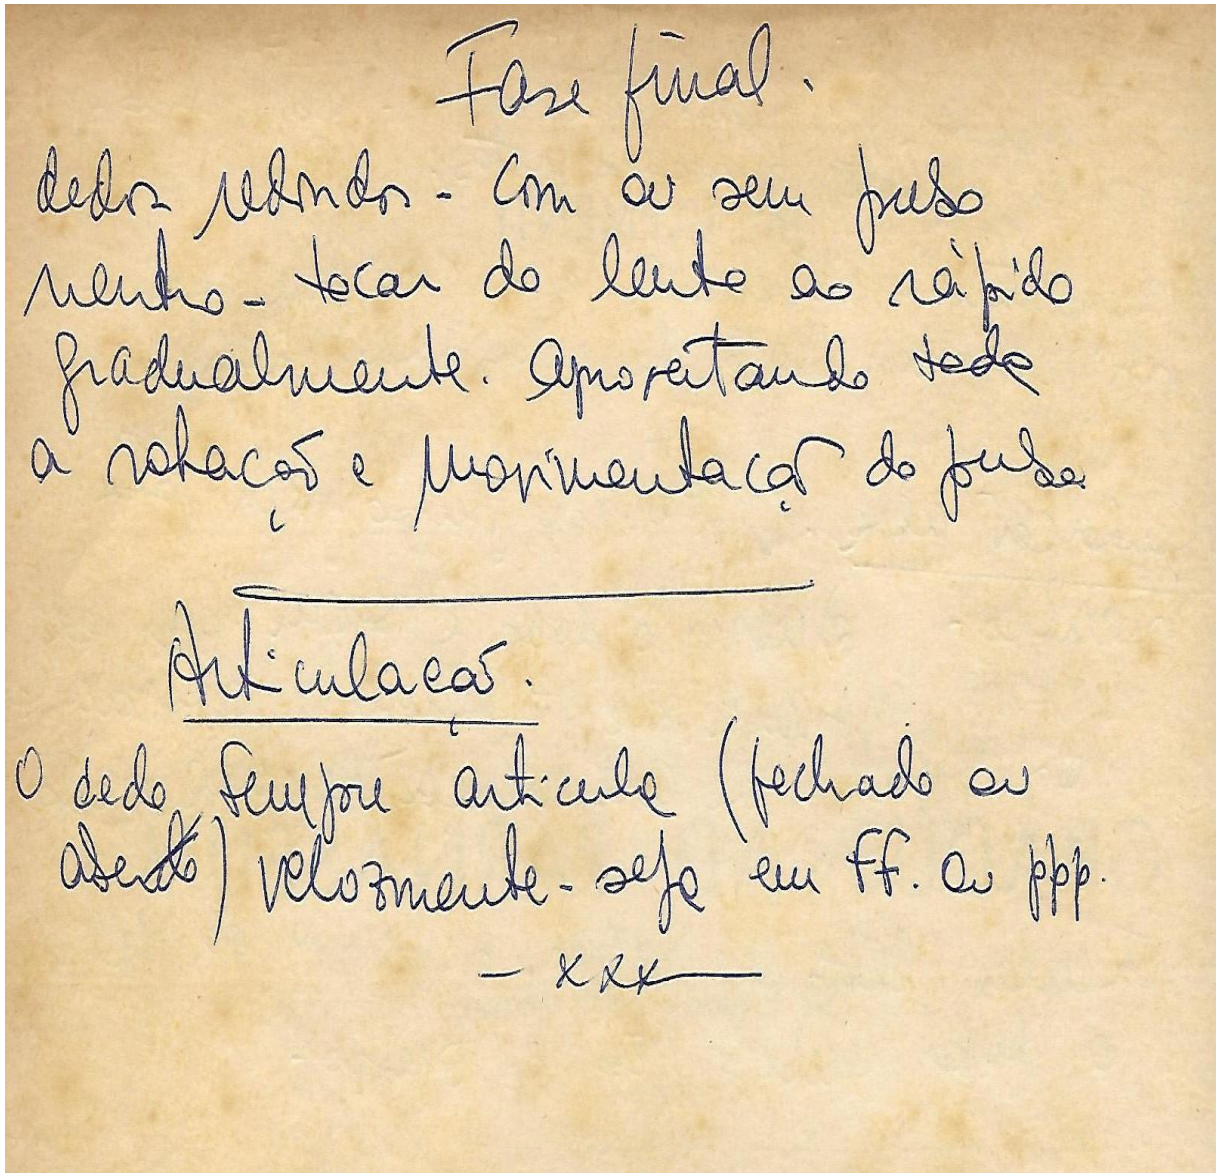 Fase final.
dedos redondos - Com ou sem pulso
neutro - tocar do lento ao rápido
gradualmente. Aproveitando toda
a rotação e movimentação do pulso
Articulação.
O dedo sempre articula (fechado ou
aberto) velozmente - seja em ff. ou ppp.
- xxx -